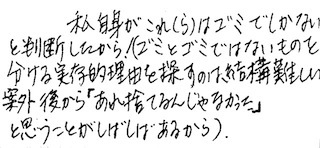 私自身がこれ(ら)はゴミでしかない
と判断したから!(ゴミとゴミではないものを
分ける実存的理由を探すのは結構難しい
案外後から「あれ捨てるんじゃなかった」
と思うことがしばしばあるから).